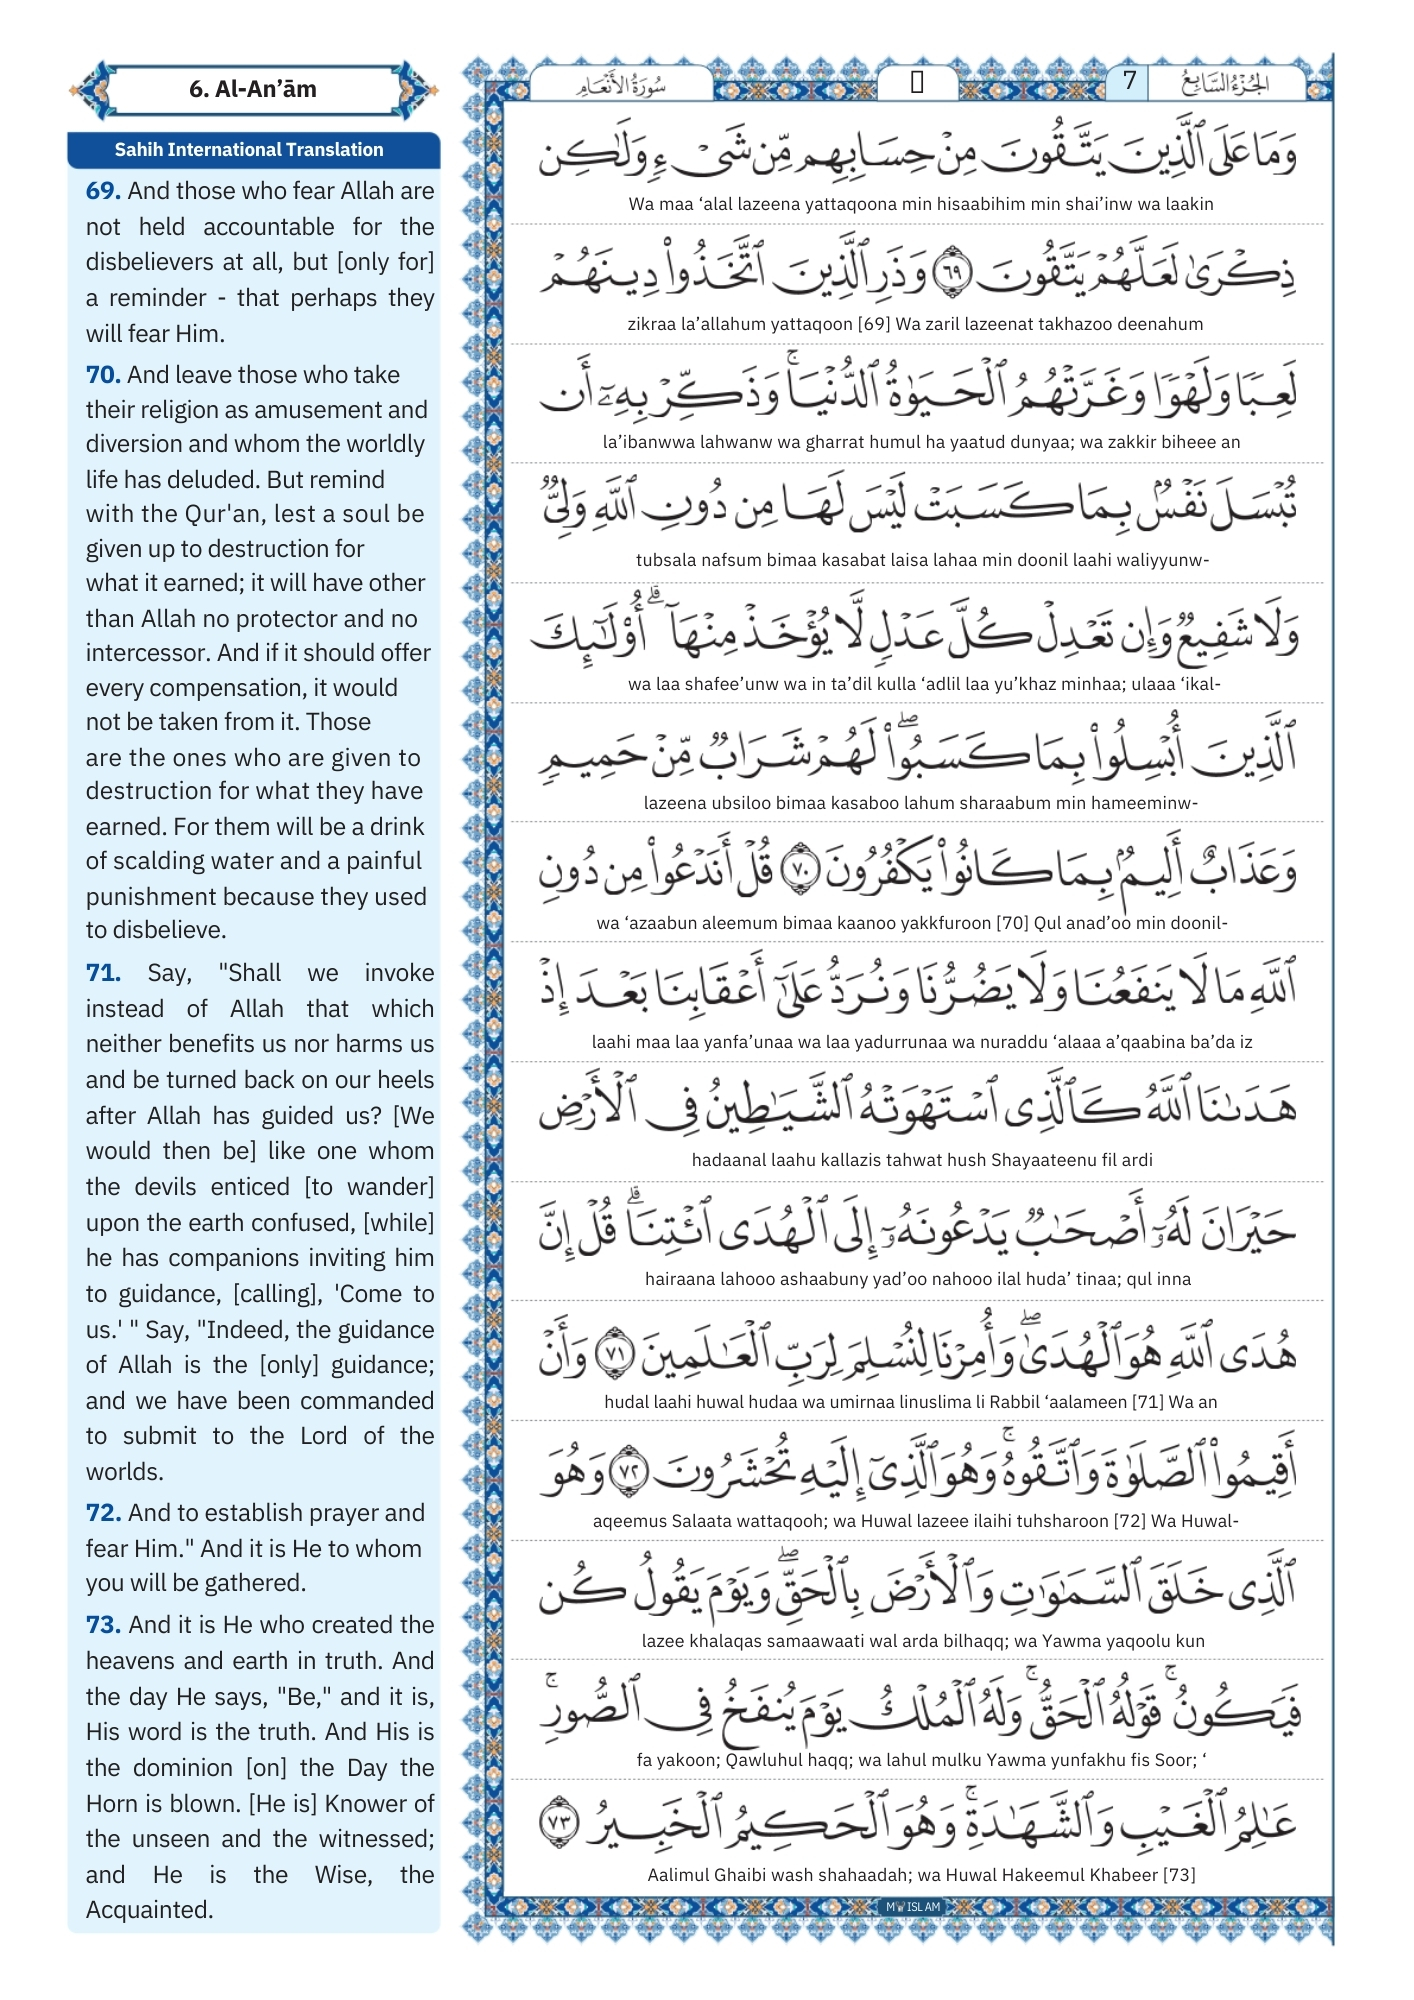 6. Al-An’ām
Sahih International Translation
69. And those who fear Allah are
not held accountable for the
disbelievers at all, but [only for]
a reminder - that perhaps they
will fear Him.
70. And leave those who take
their religion as amusement and
diversion and whom the worldly
life has deluded. But remind
with the Qur'an, lest a soul be
given up to destruction for
what it earned; it will have other
than Allah no protector and no
intercessor. And if it should offer
every compensation, it would
not be taken from it. Those
are the ones who are given to
destruction for what they have
earned. For them will be a drink
of scalding water and a painful
punishment because they used
to disbelieve.
71. Say, "Shall we invoke
instead of Allah that which
neither benefits us nor harms us
and be turned back on our heels
after Allah has guided us? [We
would then be] like one whom
the devils enticed [to wander]
upon the earth confused, [while]
he has companions inviting him
to guidance, [calling], 'Come to
us.' " Say, "Indeed, the guidance
of Allah is the [only] guidance;
and we have been commanded
to submit to the Lord of the
worlds.
72. And to establish prayer and
fear Him." And it is He to whom
you will be gathered.
73. And it is He who created the
heavens and earth in truth. And
the day He says, "Be," and it is,
His word is the truth. And His is
the dominion [on] the Day the
Horn is blown. [He is] Knower of
the unseen and the witnessed;
and He is the Wise, the
Acquainted.
سُورَةُ الأَنْعَام
7 الجُزْءُ السَّابِعُ
وَمَا عَلَى ٱلَّذِينَ يَتَّقُونَ مِنْ حِسَابِهِم مِّن شَىْءٍ وَلَٰكِن
Wa maa ‘alal lazeena yattaqoona min hisaabihim min shai’inw wa laakin
ذِكْرَىٰ لَعَلَّهُمْ يَتَّقُونَ ٦٩ وَذَرِ ٱلَّذِينَ ٱتَّخَذُوا۟ دِينَهُمْ
zikraa la’allahum yattaqoon [69] Wa zaril lazeenat takhazoo deenahum
لَعِبًا وَلَهْوًا وَغَرَّتْهُمُ ٱلْحَيَوٰةُ ٱلدُّنْيَا ۚ وَذَكِّرْ بِهِۦٓ أَن
la’ibanwwa lahwanw wa gharrat humul ha yaatud dunyaa; wa zakkir biheee an
تُبْسَلَ نَفْسٌۢ بِمَا كَسَبَتْ لَيْسَ لَهَا مِن دُونِ ٱللَّهِ وَلِىٌّ
tubsala nafsum bimaa kasabat laisa lahaa min doonil laahi waliyyunw-
وَلَا شَفِيعٌ وَإِن تَعْدِلْ كُلَّ عَدْلٍ لَّا يُؤْخَذْ مِنْهَآ ۗ أُو۟لَٰٓئِكَ
wa laa shafee’unw wa in ta’dil kulla ‘adlil laa yu’khaz minhaa; ulaaa ‘ikal-
ٱلَّذِينَ أُبْسِلُوا۟ بِمَا كَسَبُوا۟ ۖ لَهُمْ شَرَابٌ مِّنْ حَمِيمٍ
lazeena ubsiloo bimaa kasaboo lahum sharaabum min hameeminw-
وَعَذَابٌ أَلِيمٌۢ بِمَا كَانُوا۟ يَكْفُرُونَ ٧٠ قُلْ أَنَدْعُوا۟ مِن دُونِ
wa ‘azaabun aleemum bimaa kaanoo yakkfuroon [70] Qul anad’oo min doonil-
ٱللَّهِ مَا لَا يَنفَعُنَا وَلَا يَضُرُّنَا وَنُرَدُّ عَلَىٰٓ أَعْقَابِنَا بَعْدَ إِذْ
laahi maa laa yanfa’unaa wa laa yadurrunaa wa nuraddu ‘alaaa a’qaabina ba’da iz
هَدَىٰنَا ٱللَّهُ كَٱلَّذِى ٱسْتَهْوَتْهُ ٱلشَّيَٰطِينُ فِى ٱلْأَرْضِ
hadaanal laahu kallazis tahwat hush Shayaateenu fil ardi
حَيْرَانَ لَهُۥٓ أَصْحَٰبٌ يَدْعُونَهُۥٓ إِلَى ٱلْهُدَى ٱئْتِنَا ۗ قُلْ إِنَّ
hairaana lahooo ashaabuny yad’oo nahooo ilal huda’ tinaa; qul inna
هُدَى ٱللَّهِ هُوَ ٱلْهُدَىٰ ۖ وَأُمِرْنَا لِنُسْلِمَ لِرَبِّ ٱلْعَٰلَمِينَ ٧١ وَأَنْ
hudal laahi huwal hudaa wa umirnaa linuslima li Rabbil ‘aalameen [71] Wa an
أَقِيمُوا۟ ٱلصَّلَوٰةَ وَٱتَّقُوهُ ۚ وَهُوَ ٱلَّذِىٓ إِلَيْهِ تُحْشَرُونَ ٧٢ وَهُوَ
aqeemus Salaata wattaqooh; wa Huwal lazeee ilaihi tuhsharoon [72] Wa Huwal-
ٱلَّذِى خَلَقَ ٱلسَّمَٰوَٰتِ وَٱلْأَرْضَ بِٱلْحَقِّ ۖ وَيَوْمَ يَقُولُ كُن
lazee khalaqas samaawaati wal arda bilhaqq; wa Yawma yaqoolu kun
فَيَكُونُ ۚ قَوْلُهُ ٱلْحَقُّ ۚ وَلَهُ ٱلْمُلْكُ يَوْمَ يُنفَخُ فِى ٱلصُّورِ ۚ
fa yakoon; Qawluhul haqq; wa lahul mulku Yawma yunfakhu fis Soor; ‘
عَٰلِمُ ٱلْغَيْبِ وَٱلشَّهَٰدَةِ ۚ وَهُوَ ٱلْحَكِيمُ ٱلْخَبِيرُ ٧٣
Aalimul Ghaibi wash shahaadah; wa Huwal Hakeemul Khabeer [73]